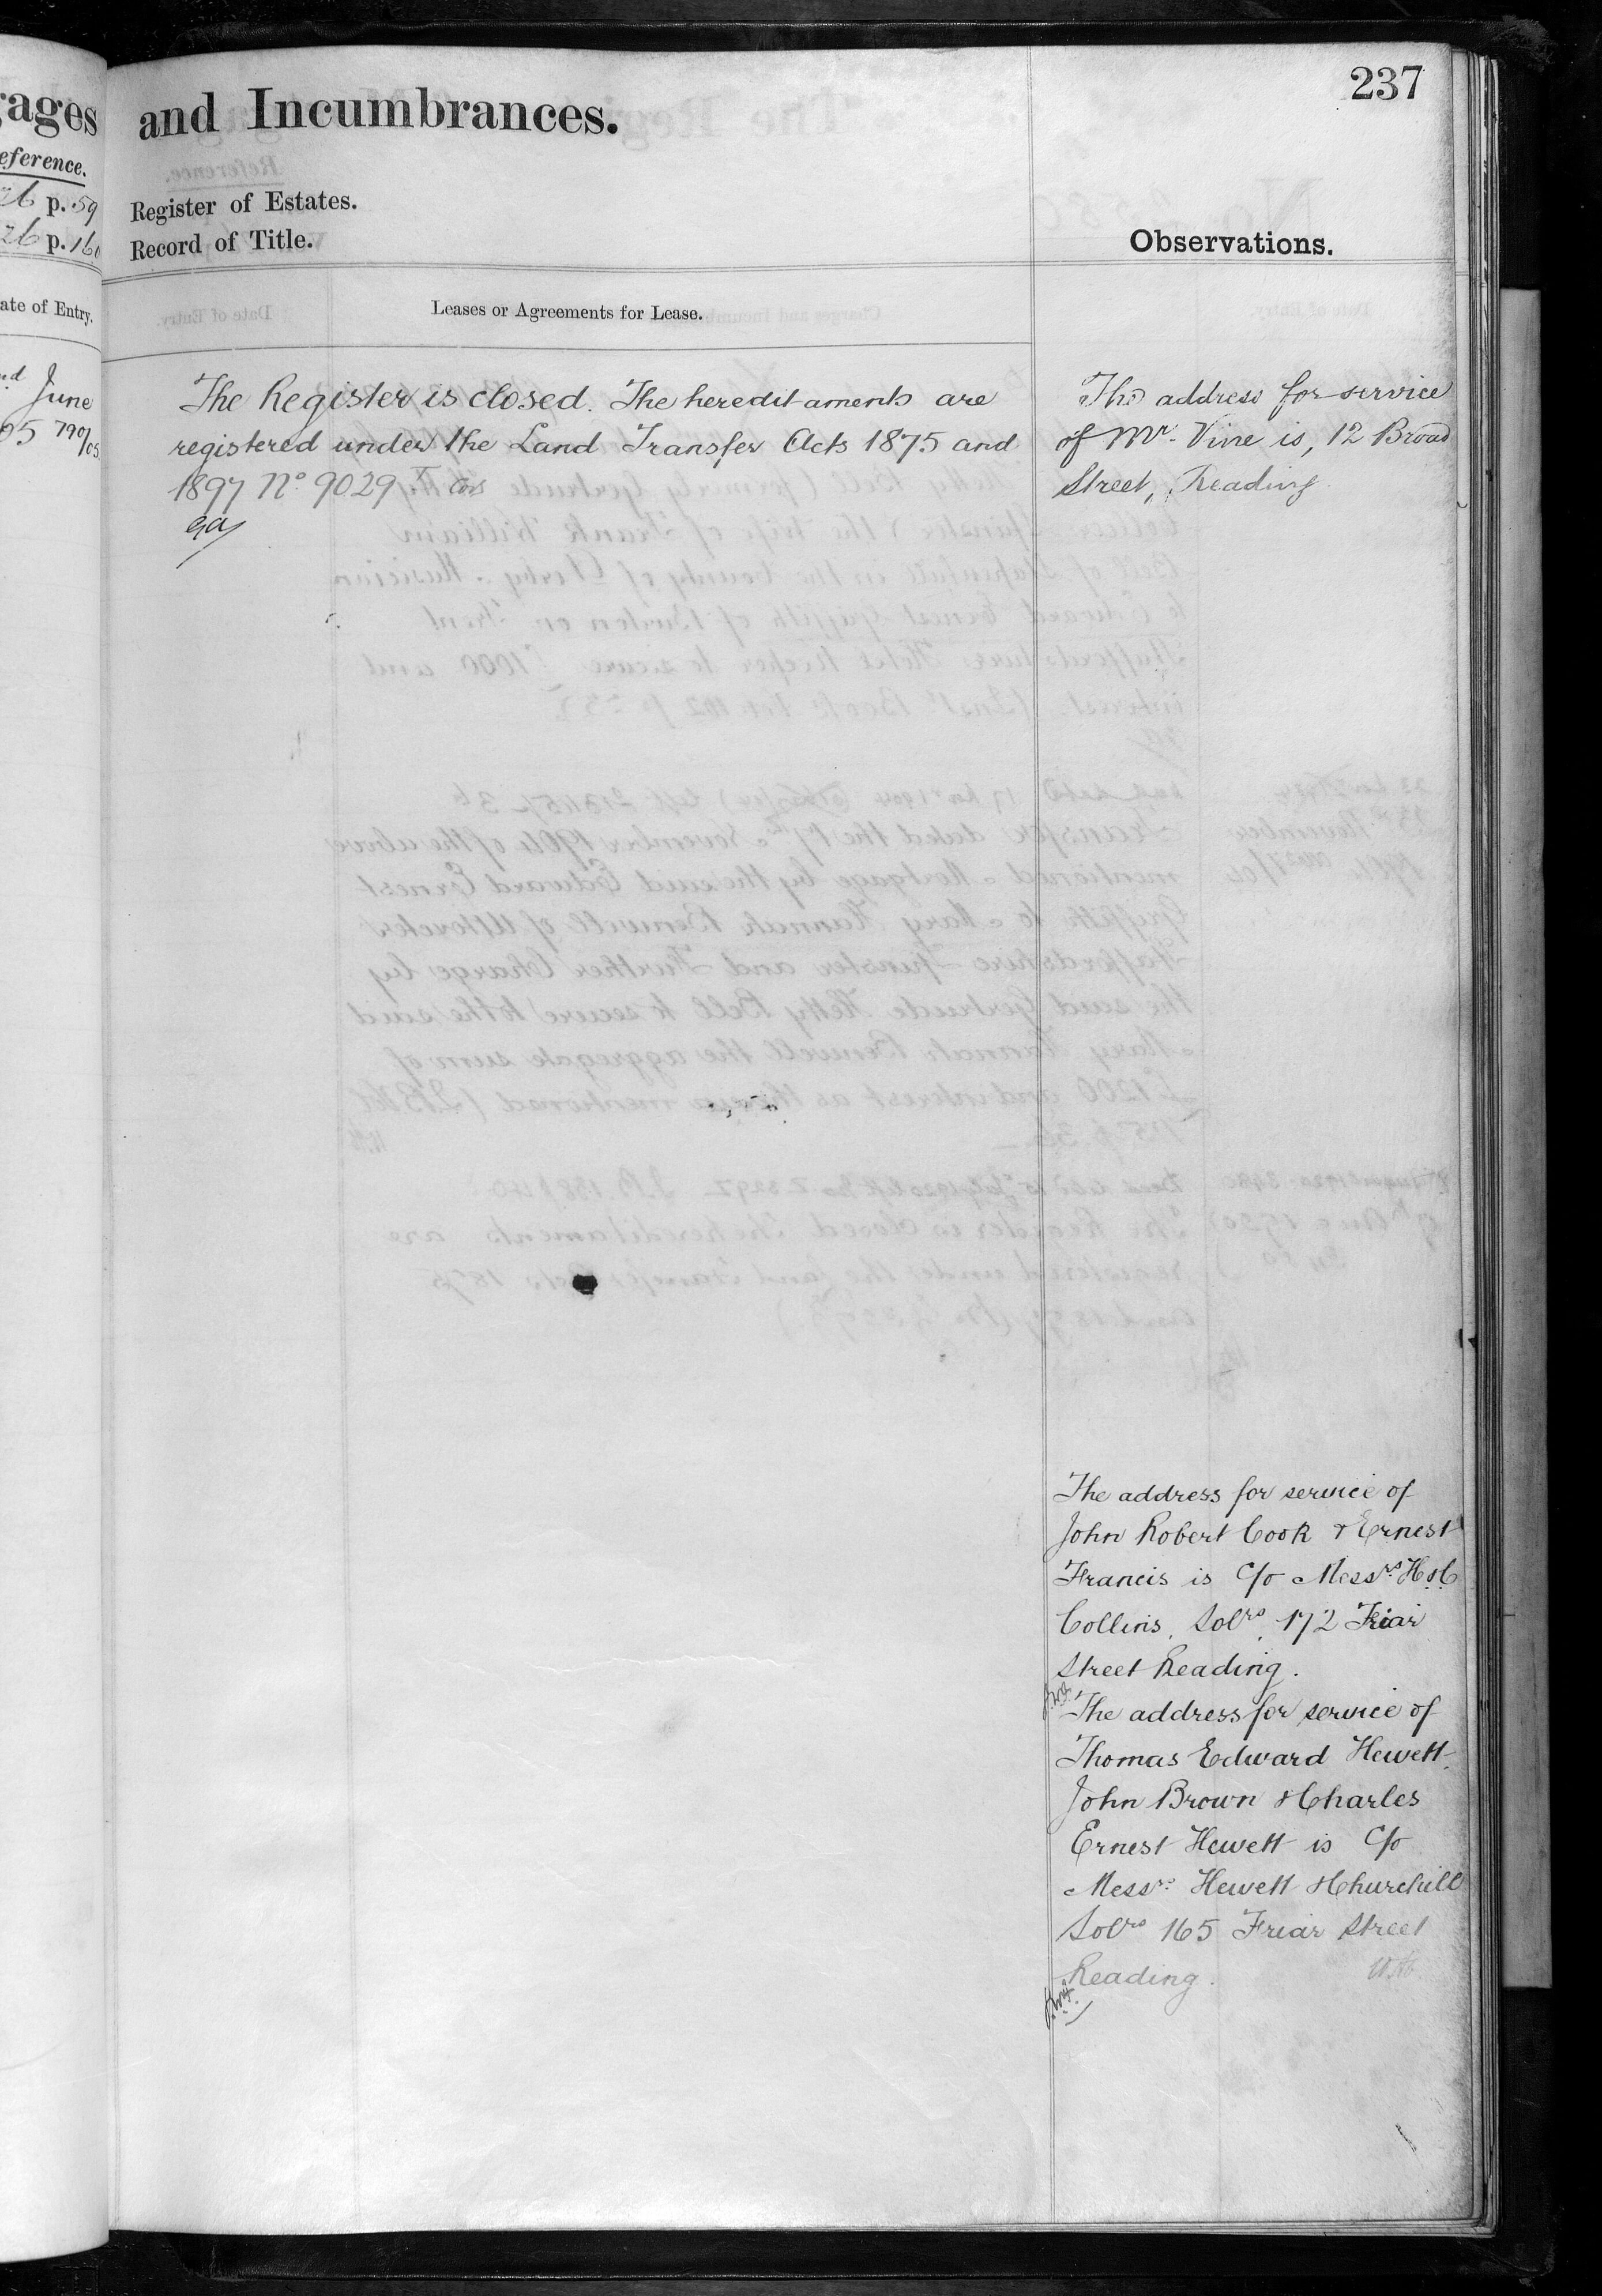 gages
eference.
26 p. 59
26 p. 160
ate of Entry.
nd June
05 790/05
and Incumbrances.
237
Register of Estates.
Record of Title.
Observations.
Leases or Agreements for Lease.
The Register is closed. The hereditaments are
registered under the Land Transfer Acts 1875 and
1897 No 9029
The address for service
of Mr. Vine is, 12 Broad
Street, Reading
The address for service of
John Robert Cook & Ernest
Francis is C/o Messrs. H & C
Collins, Solrs, 172 Friar
Street Reading.
The address for service of
Thomas Edward Hewett,
John Brown & Charles
Ernest Hewett is C/o
Messrs. Hewett & Churchill
Solrs 165 Friar Street
Reading.